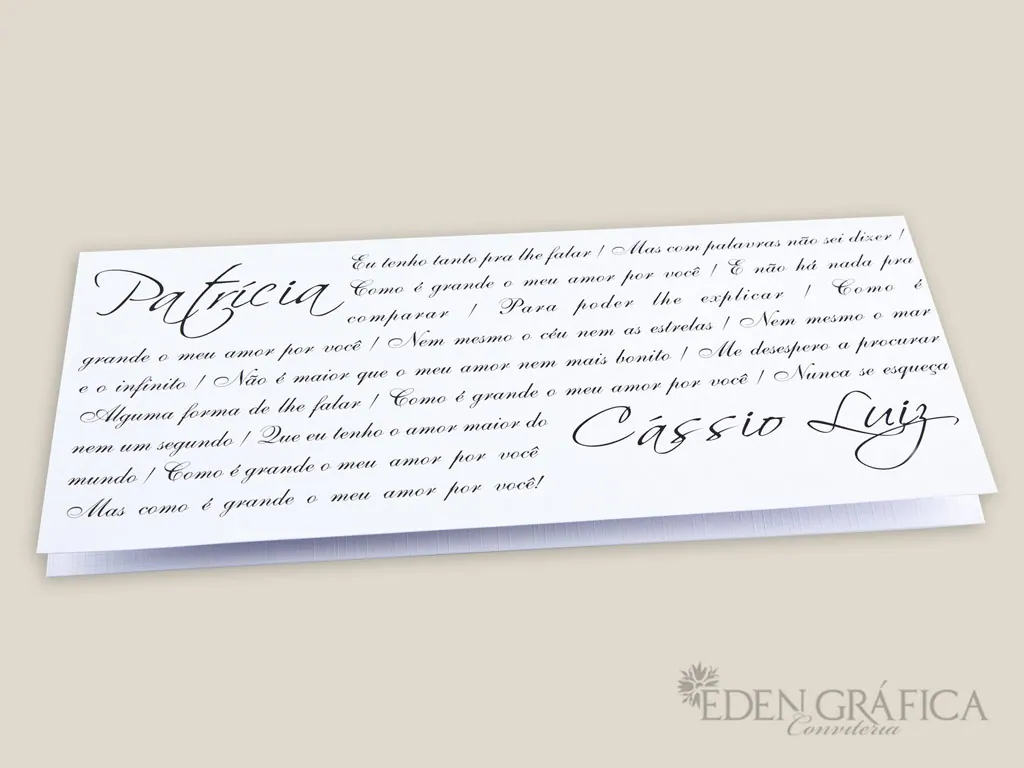 Patrícia
Eu tenho tanto pra lhe falar / Mas com palavras não sei dizer /
Como é grande o meu amor por você / E não há nada pra
comparar / Para poder lhe explicar / Como é
grande o meu amor por você / Nem mesmo o céu nem as estrelas / Nem mesmo o mar
e o infinito / Não é maior que o meu amor nem mais bonito / Me desespero a procurar
Alguma forma de lhe falar / Como é grande o meu amor por você / Nunca se esqueça
nem um segundo / Que eu tenho o amor maior do
mundo / Como é grande o meu amor por você
Mas como é grande o meu amor por você!
Cássio Luiz
EDEN GRÁFICA
Conviteria